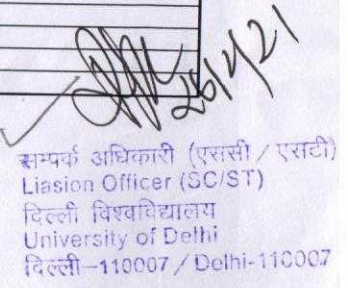 26/4/21
सम्पर्क अधिकारी (एससी / एसटी)
Liasion Officer (SC/ST)
दिल्ली विश्वविद्यालय
University of Delhi
दिल्ली-110007 / Delhi-110007